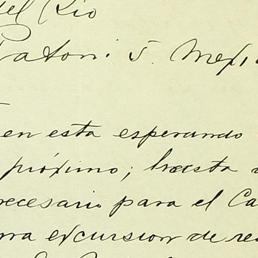 del Rio
Patoni 5. Mexi
en esta esperando
próximo; hasta
necesario para el Ca
una excursion de re